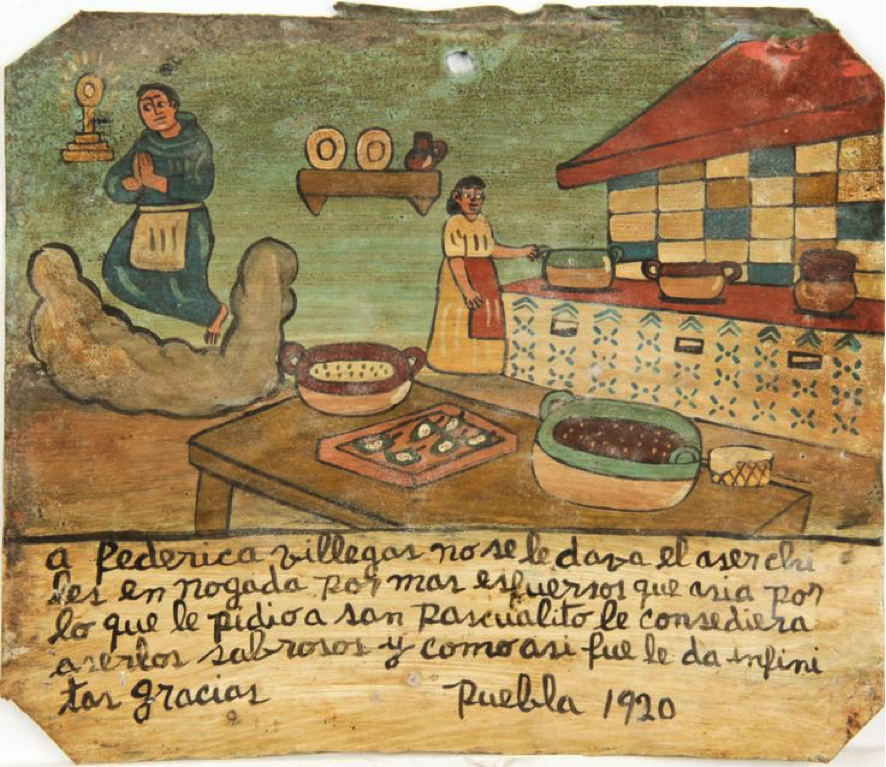 a federica villegas no se le dava el aser chi
les en nogada por mas esfuersos que asia por
lo que le pidio a san Pascualito le consediera
aserlos sabrosos y como asi fue le da infini
tas gracias Puebla 1920